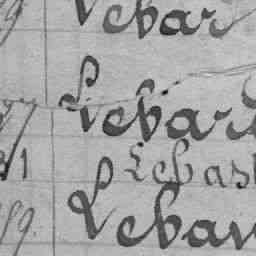 9 Lebar
77 Lebar
81 Lebas
89. Lebar